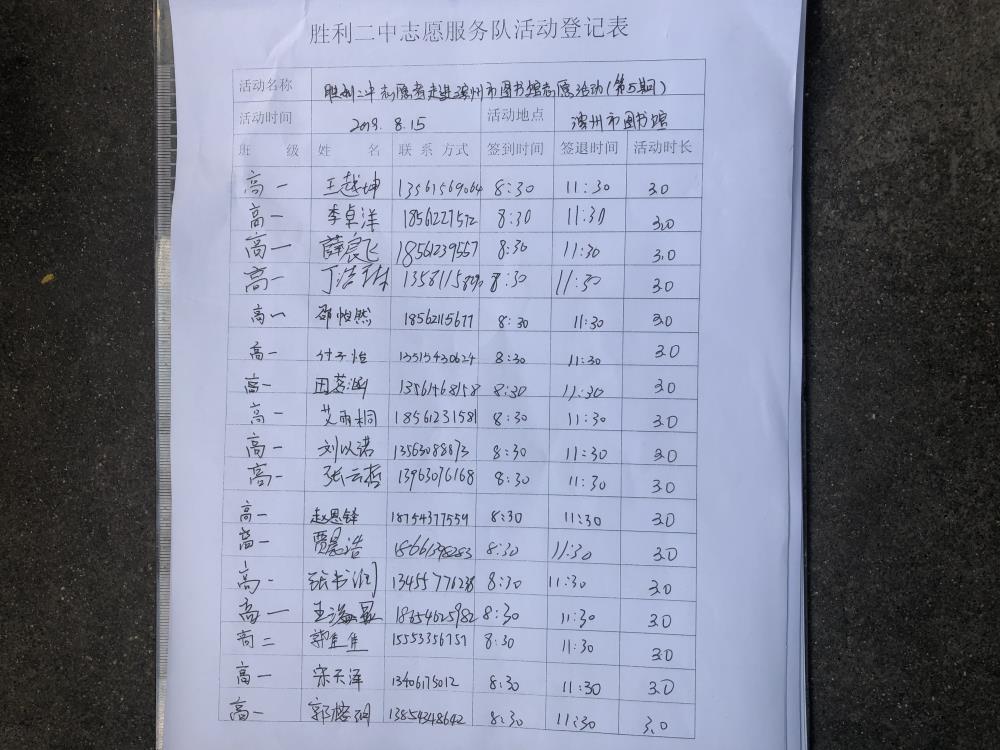 胜利二中志愿服务队活动登记表
活动名称 胜利二中志愿者走进滨州市图书馆志愿活动(第5期)
活动时间 2019.8.15 活动地点 滨州市图书馆
班 级 姓 名 联系方式 签到时间 签退时间 活动时长
高一 王越坤 13561569064 8:30 11:30 3.0
高一 李卓洋 18561227572 8:30 11:30 3.0
高一 薛宸飞 18561239557 8:30 11:30 3.0
高一 丁浩琳 8:30 11:30 3.0
高一 邵怡然 18562115677 8:30 11:30 3.0
高一 付子怡 13515430624 8:30 11:30 3.0
高一 田茗 13561468158 8:30 11:30 3.0
高一 艾雨桐 18561231581 8:30 11:30 3.0
高一 刘以诺 13563088873 8:30 11:30 3.0
高一 张云哲 13963076168 8:30 11:30 3.0
高一 赵恩铎 18754377559 8:30 11:30 3.0
高一 贾晨浩 8:30 11:30 3.0
高一 张书润 13455771238 8:30 11:30 3.0
高一 王 18654625982 8:30 11:30 3.0
高二 郭佳佳 15553356757 8:30 11:30 3.0
高一 宋天泽 13406175012 8:30 11:30 3.0
高一 郭榕 13854348642 8:30 11:30 3.0